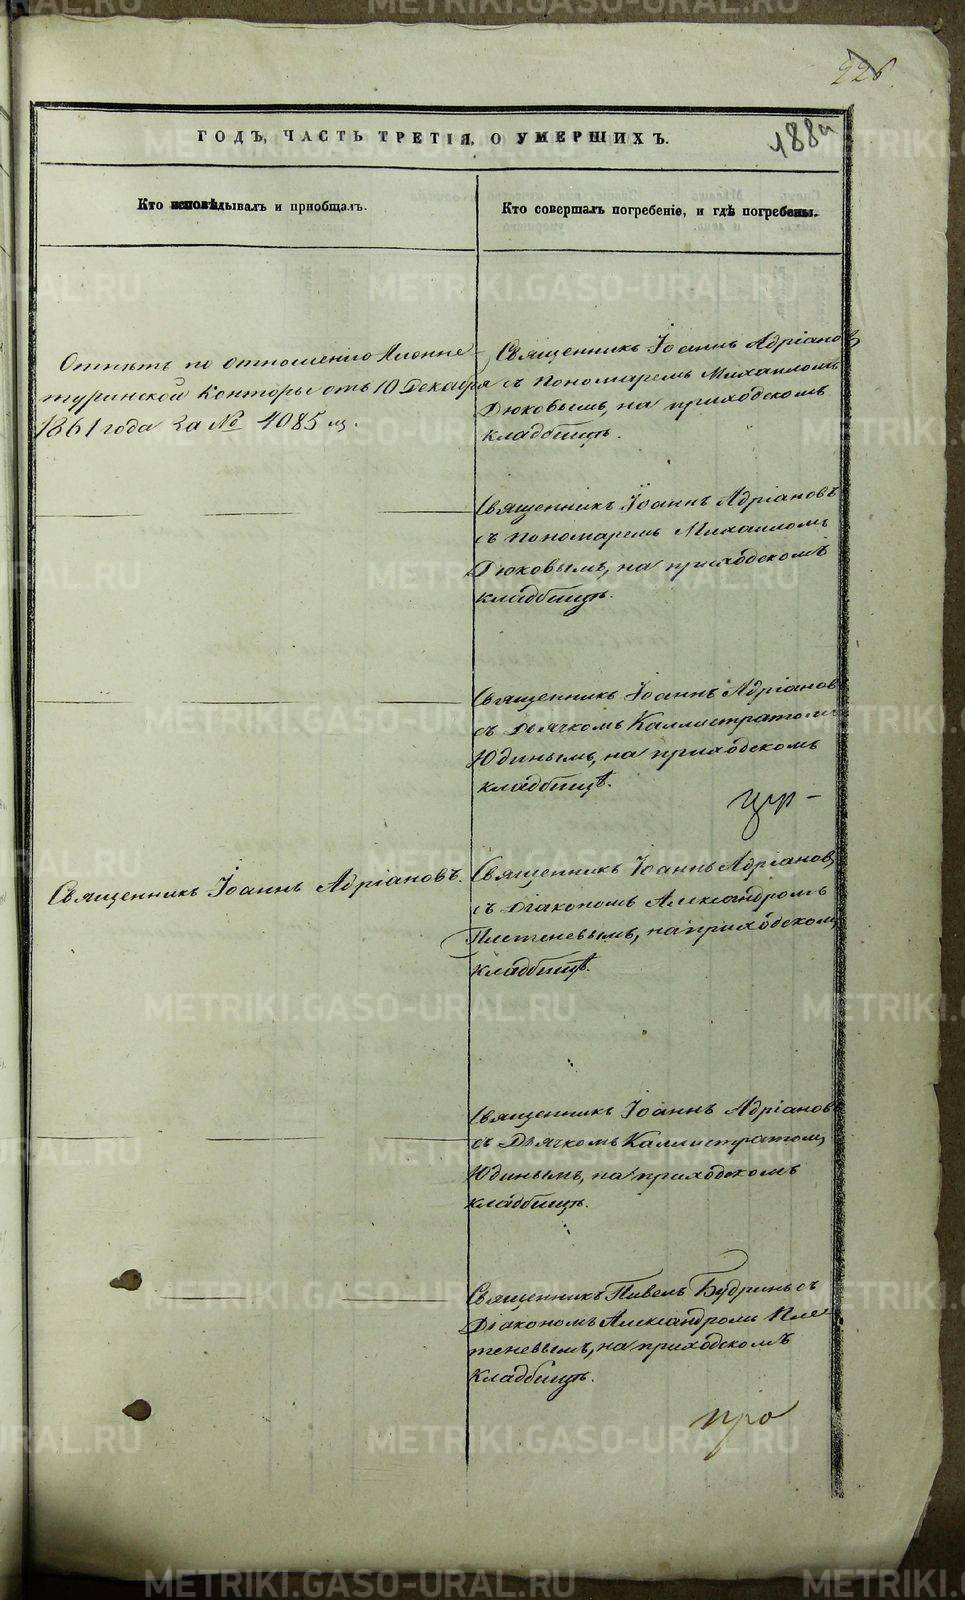 226
188
ГОДЪ, ЧАСТЬ ТРЕТІЯ, О УМЕРШИХЪ.
Кто исповѣдывалъ и пріобщалъ.
Кто совершалъ погребеніе, и гдѣ погребены.
Отпѣтъ по отношенію Нижне-
туринской Конторы отъ 10 Декабря
1861 года за № 4085 м.
Священникъ Іоаннъ Адріановъ
съ Пономаремъ Михаиломъ
Дюковымъ, на приходскомъ
кладбищѣ.
Священникъ Іоаннъ Адріановъ
съ Пономаремъ Михаиломъ
Дюковымъ, на приходскомъ
кладбищѣ.
Священникъ Іоаннъ Адріановъ
съ Дьячкомъ Каллистратомъ
Юдинымъ, на приходскомъ
кладбищѣ.
Священникъ Іоаннъ Адріановъ.
Священникъ Іоаннъ Адріановъ
съ Діакономъ Александромъ
Плетеневымъ, на приходскомъ
кладбищѣ.
Священникъ Іоаннъ Адріановъ
съ Дьячкомъ Каллистратомъ
Юдинымъ, на приходскомъ
кладбищѣ.
Священникъ Павелъ Будринъ съ
Діакономъ Александромъ Пле-
теневымъ, на приходскомъ
кладбищѣ.
про
METRIKI.GASO-URAL.RU